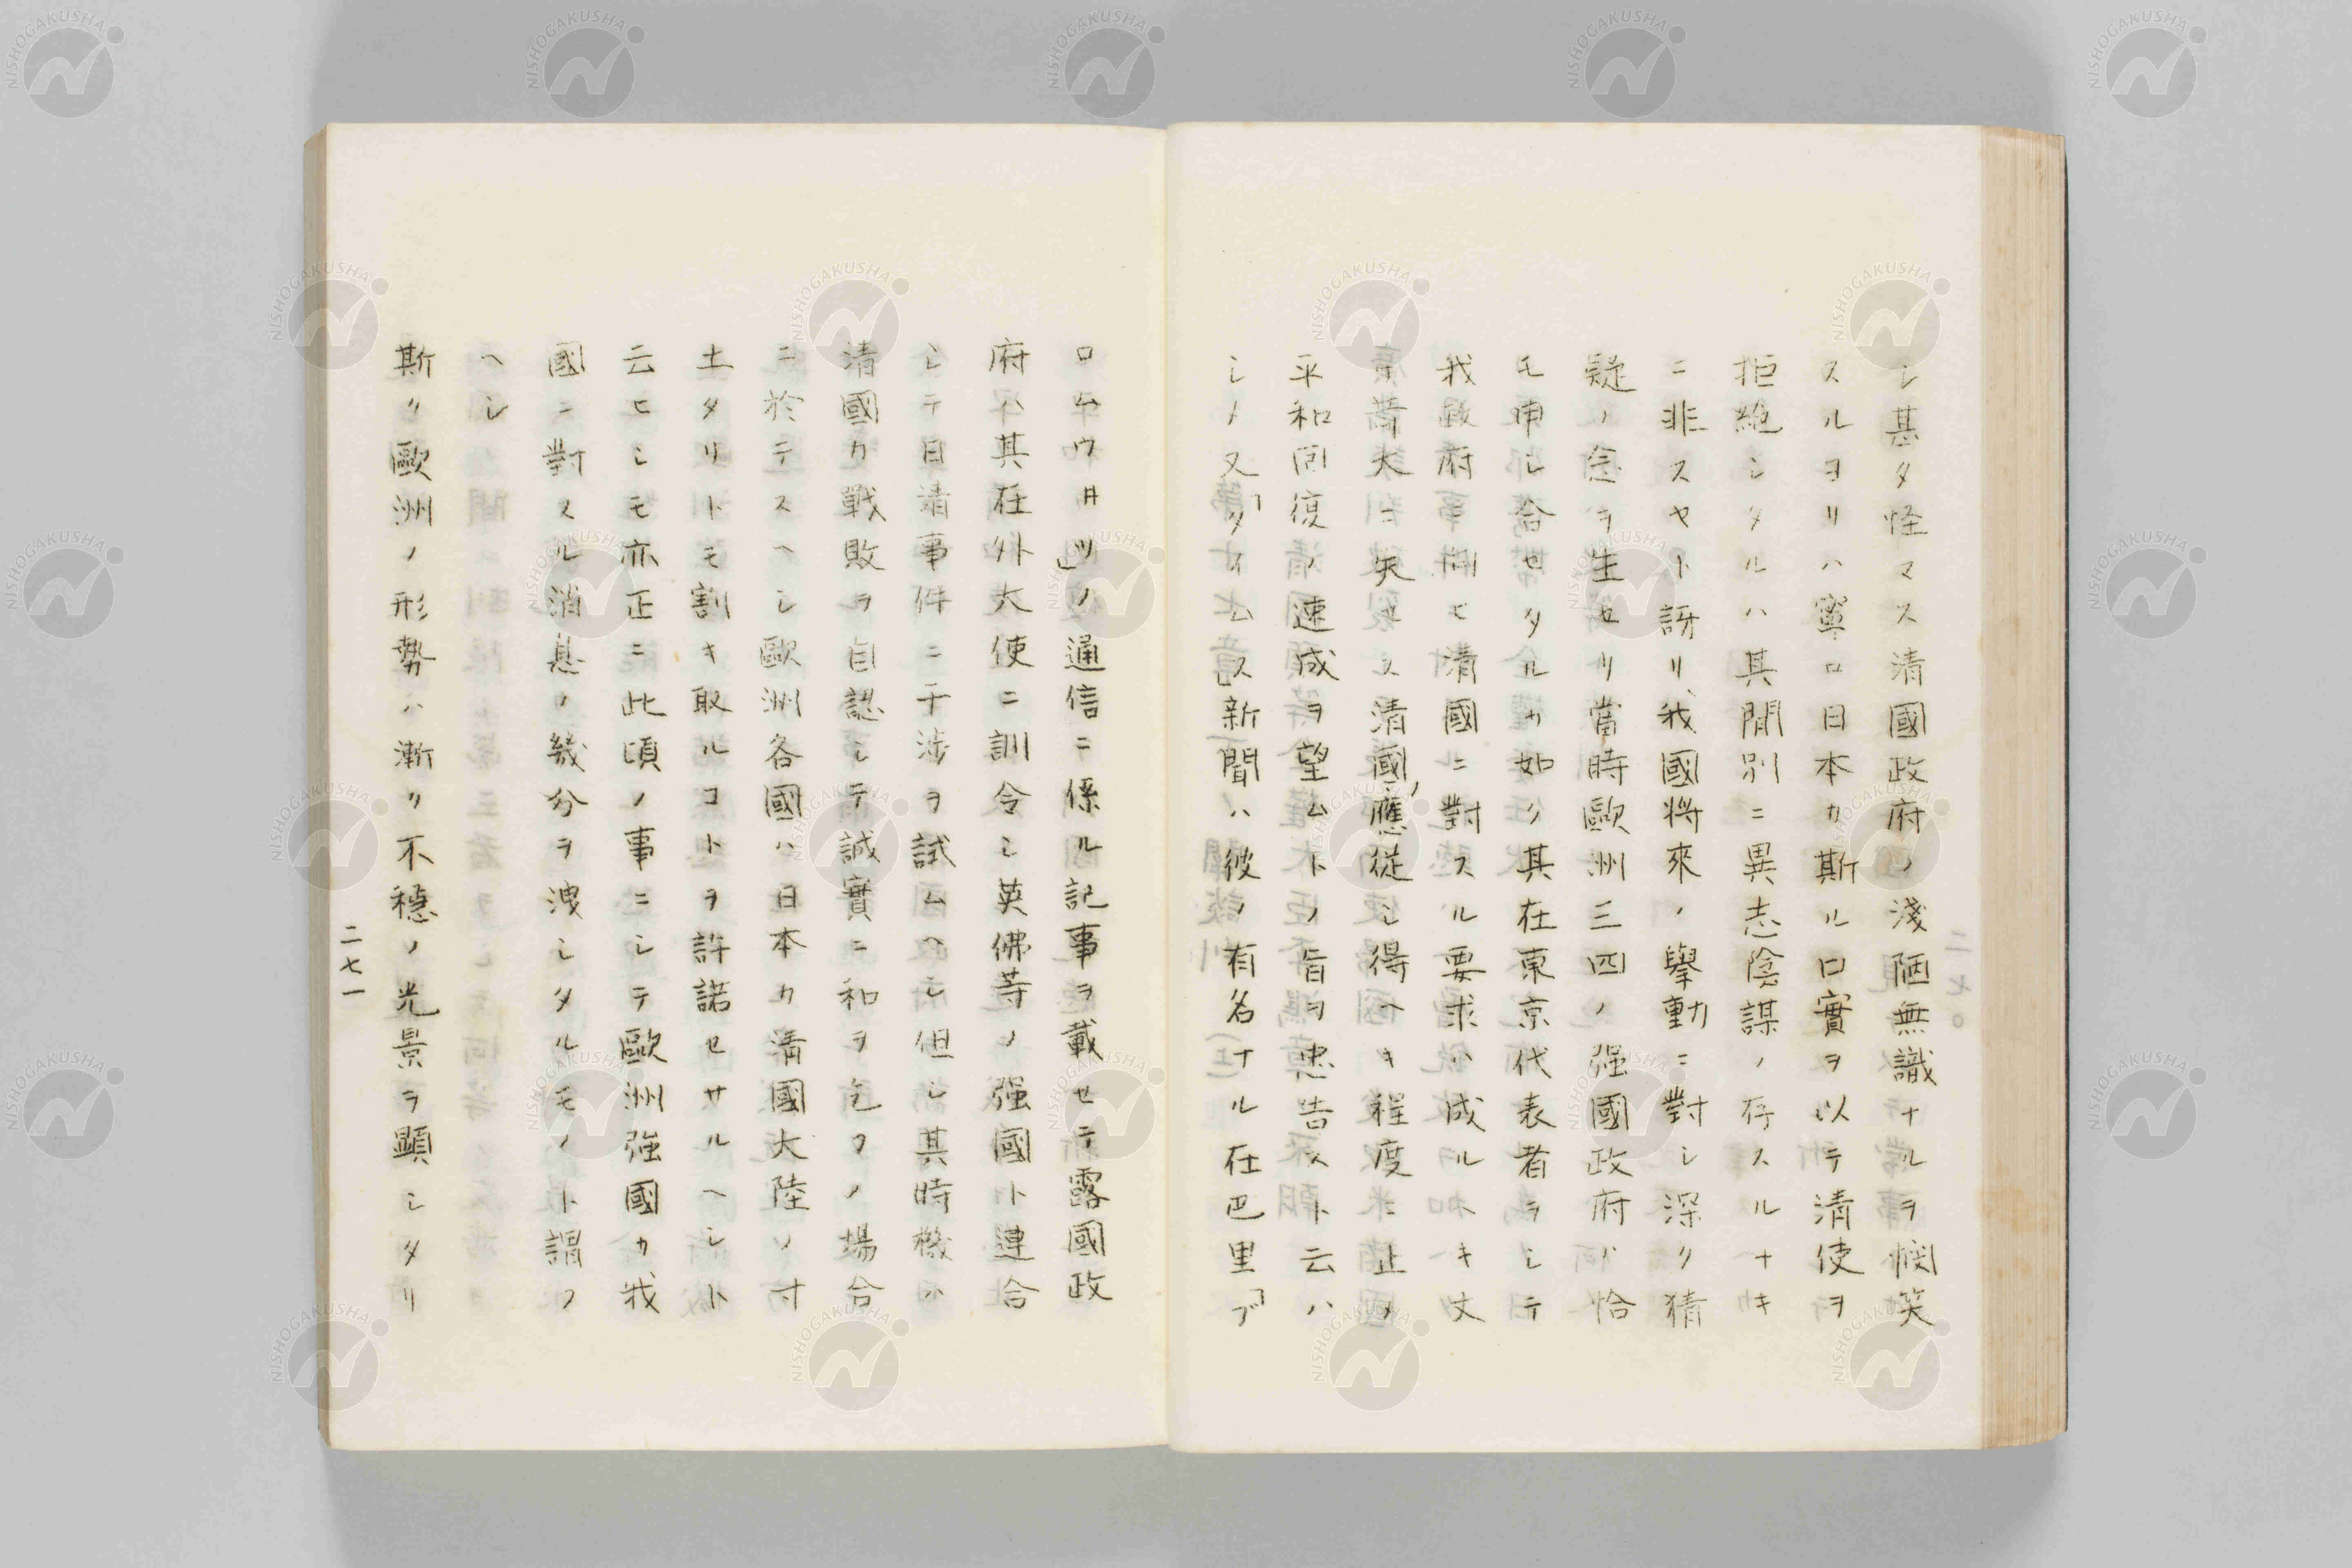 シ甚タ怪マス清國政府ノ淺陋無識ナルヲ憫笑
スルヨリハ寧ロ日本カ斯ル口實ヲ以テ清使ヲ
拒絶シタルハ其間別ニ異志陰謀ノ存スルナキ
ニ非スヤト訝リ我國将來ノ擧動ニ對シ深ク猜
疑ノ念ヲ生セリ當時歐洲三四ノ强國政府ハ恰
モ申シ合セタルカ如ク其在東京代表者ヲシテ
我政府ニ向ヒ清國ニ對スル要求ハ成ルヘキ丈
ケ夸大ニ失セス清國ノ應従シ得ヘキ程度ニ止メ
平和回復ノ速成ヲ望ムトノ旨ヲ忠告スト云ハ
シメ又「タイムス新聞ハ彼ノ有名ナル在巴里「ブ
二七〇
ロムウ井ツ」ノ通信ニ係ル記事ヲ載セテ露國政
府ハ其在外大使ニ訓令シ英佛等ノ强國ト連合
シテ日清事件ニ干渉ヲ試ムヘシ但シ其時機ハ
清國カ戰敗ヲ自認シテ誠實ニ和ヲ乞フノ場合
ニ於テスヘシ歐洲各國ハ日本カ清國大陸ノ寸
土タリトモ割キ取ルコトヲ許諾セサルヘシト
云ヒシモ亦正ニ此頃ノ事ニシテ歐洲强國カ我
國ニ對スル消息ノ幾分ヲ洩シタルモノト謂フ
ヘシ
斯ク歐洲ノ形勢ハ漸ク不穩ノ光景ヲ顯シタリ
二七一
NISHOGAKUSHA